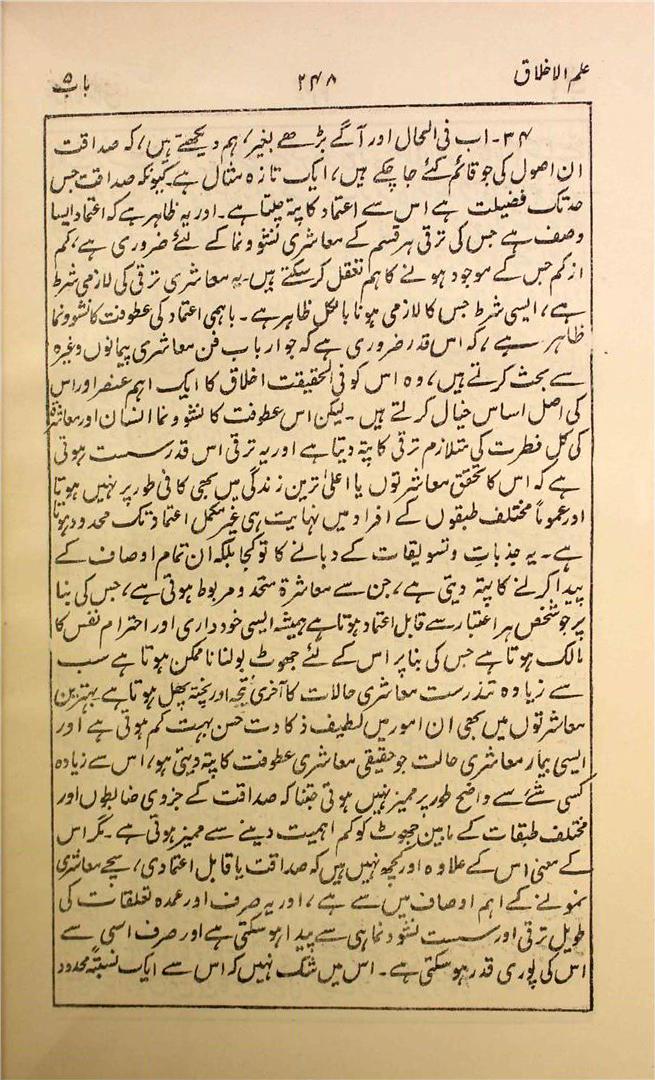 علم الاخلاق
۲۴۸
باب ۵
۳۴۔ اب فی الحال اور آگے بڑھے بغیر، ہم دیکھتے ہیں، کہ صداقت
ان اصول کی جو قائم کئے جا چکے ہیں، ایک تازہ مثال ہے۔ کیونکہ صداقت جس
حد تک فضیلت ہے اس سے اعتماد کا پتہ چلتا ہے۔ اور یہ ظاہر ہے کہ اعتماد ایسا
وصف ہے جس کی ترقی ہر قسم کے معاشری نشوونما کے لئے ضروری ہے، کم
از کم جس کے موجود ہونے کا ہم تعقل کر سکتے ہیں۔ یہ معاشری ترقی کی لازمی شرط
ہے، ایسی شرط جس کا لازمی ہونا بالکل ظاہر ہے۔ باہمی اعتماد کی عطوفت کا نشوونما
ظاہر ہے، کہ اس قدر ضروری ہے کہ جو ارباب فن معاشری پیمانوں وغیرہ
سے بحث کرتے ہیں، وہ اس کو فی الحقیقت اخلاق کا ایک اہم عنصر اور اس
کی اصل اساس خیال کرتے ہیں۔ لیکن اس عطوفت کا نشوونما انسان اور معاشرہ
کی کل فطرت کی متلازم ترقی کا پتہ دیتا ہے اور یہ ترقی اس قدر سست ہوتی
ہے کہ اس کا تحقق معاشرتوں یا اعلیٰ ترین زندگی میں بھی کافی طور پر نہیں ہوتا
اور عموماً مختلف طبقوں کے افراد میں نہایت ہی غیر مکمل اعتماد تک محدود ہوتا
ہے۔ یہ جذبات و تسویقات کے دبانے کا تو کجا بلکہ ان تمام اوصاف کے
پیدا کرنے کا پتہ دیتی ہے، جن سے معاشرۃ متحد و مربوط ہوتی ہے، جس کی بنا
پر جو شخص ہر اعتبار سے قابل اعتماد ہوتا ہے ہمیشہ ایسی خودداری اور احترام نفس کا
مالک ہوتا ہے جس کی بنا پر اس کے لئے جھوٹ بولنا ناممکن ہوتا ہے سب
سے زیادہ تندرست معاشری حالات کا آخری نتیجہ اور پختہ پھل ہوتا ہے بہترین
معاشرتوں میں بھی ان امور میں لطیف ذکاوت حسن بہت کم ہوتی ہے اور
ایسی بیمار معاشری حالت جو حقیقی معاشری عطوفت کا پتہ دیتی ہو، اس سے زیادہ
کسی شئے سے واضح طور پر ممیز نہیں ہوتی جتنا کہ صداقت کے جزوی ضابطوں اور
مختلف طبقات کے مابین جھوٹ کو کم اہمیت دینے سے ممیز ہوتی ہے۔ مگر اس
کے معنی اس کے علاوہ اور کچھ نہیں ہیں کہ صداقت یا قابل اعتمادی، سچے معاشری
نمونے کے اہم اوصاف میں سے ہے، اور یہ صرف اور عمدہ تعلقات کی
طویل ترقی اور سست نشوونما ہی سے پیدا ہو سکتی ہے اور صرف اسی سے
اس کی پوری قدر ہو سکتی ہے۔ اس میں شک نہیں کہ اس سے ایک نسبتہً محدود